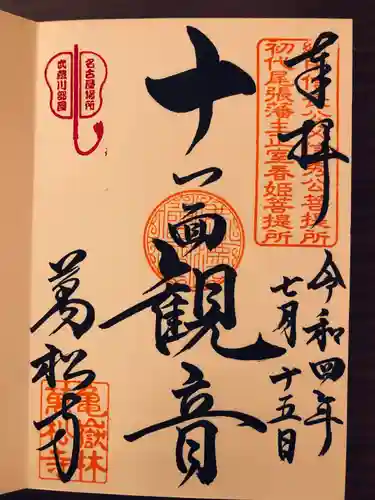 奉拝
秀公菩提所
初代尾張藩主正室春姫菩提所
令和四年
七月十五日
十一面観音
名古屋場所
武蔵川部屋
萬松寺
亀嶽林
萬松寺